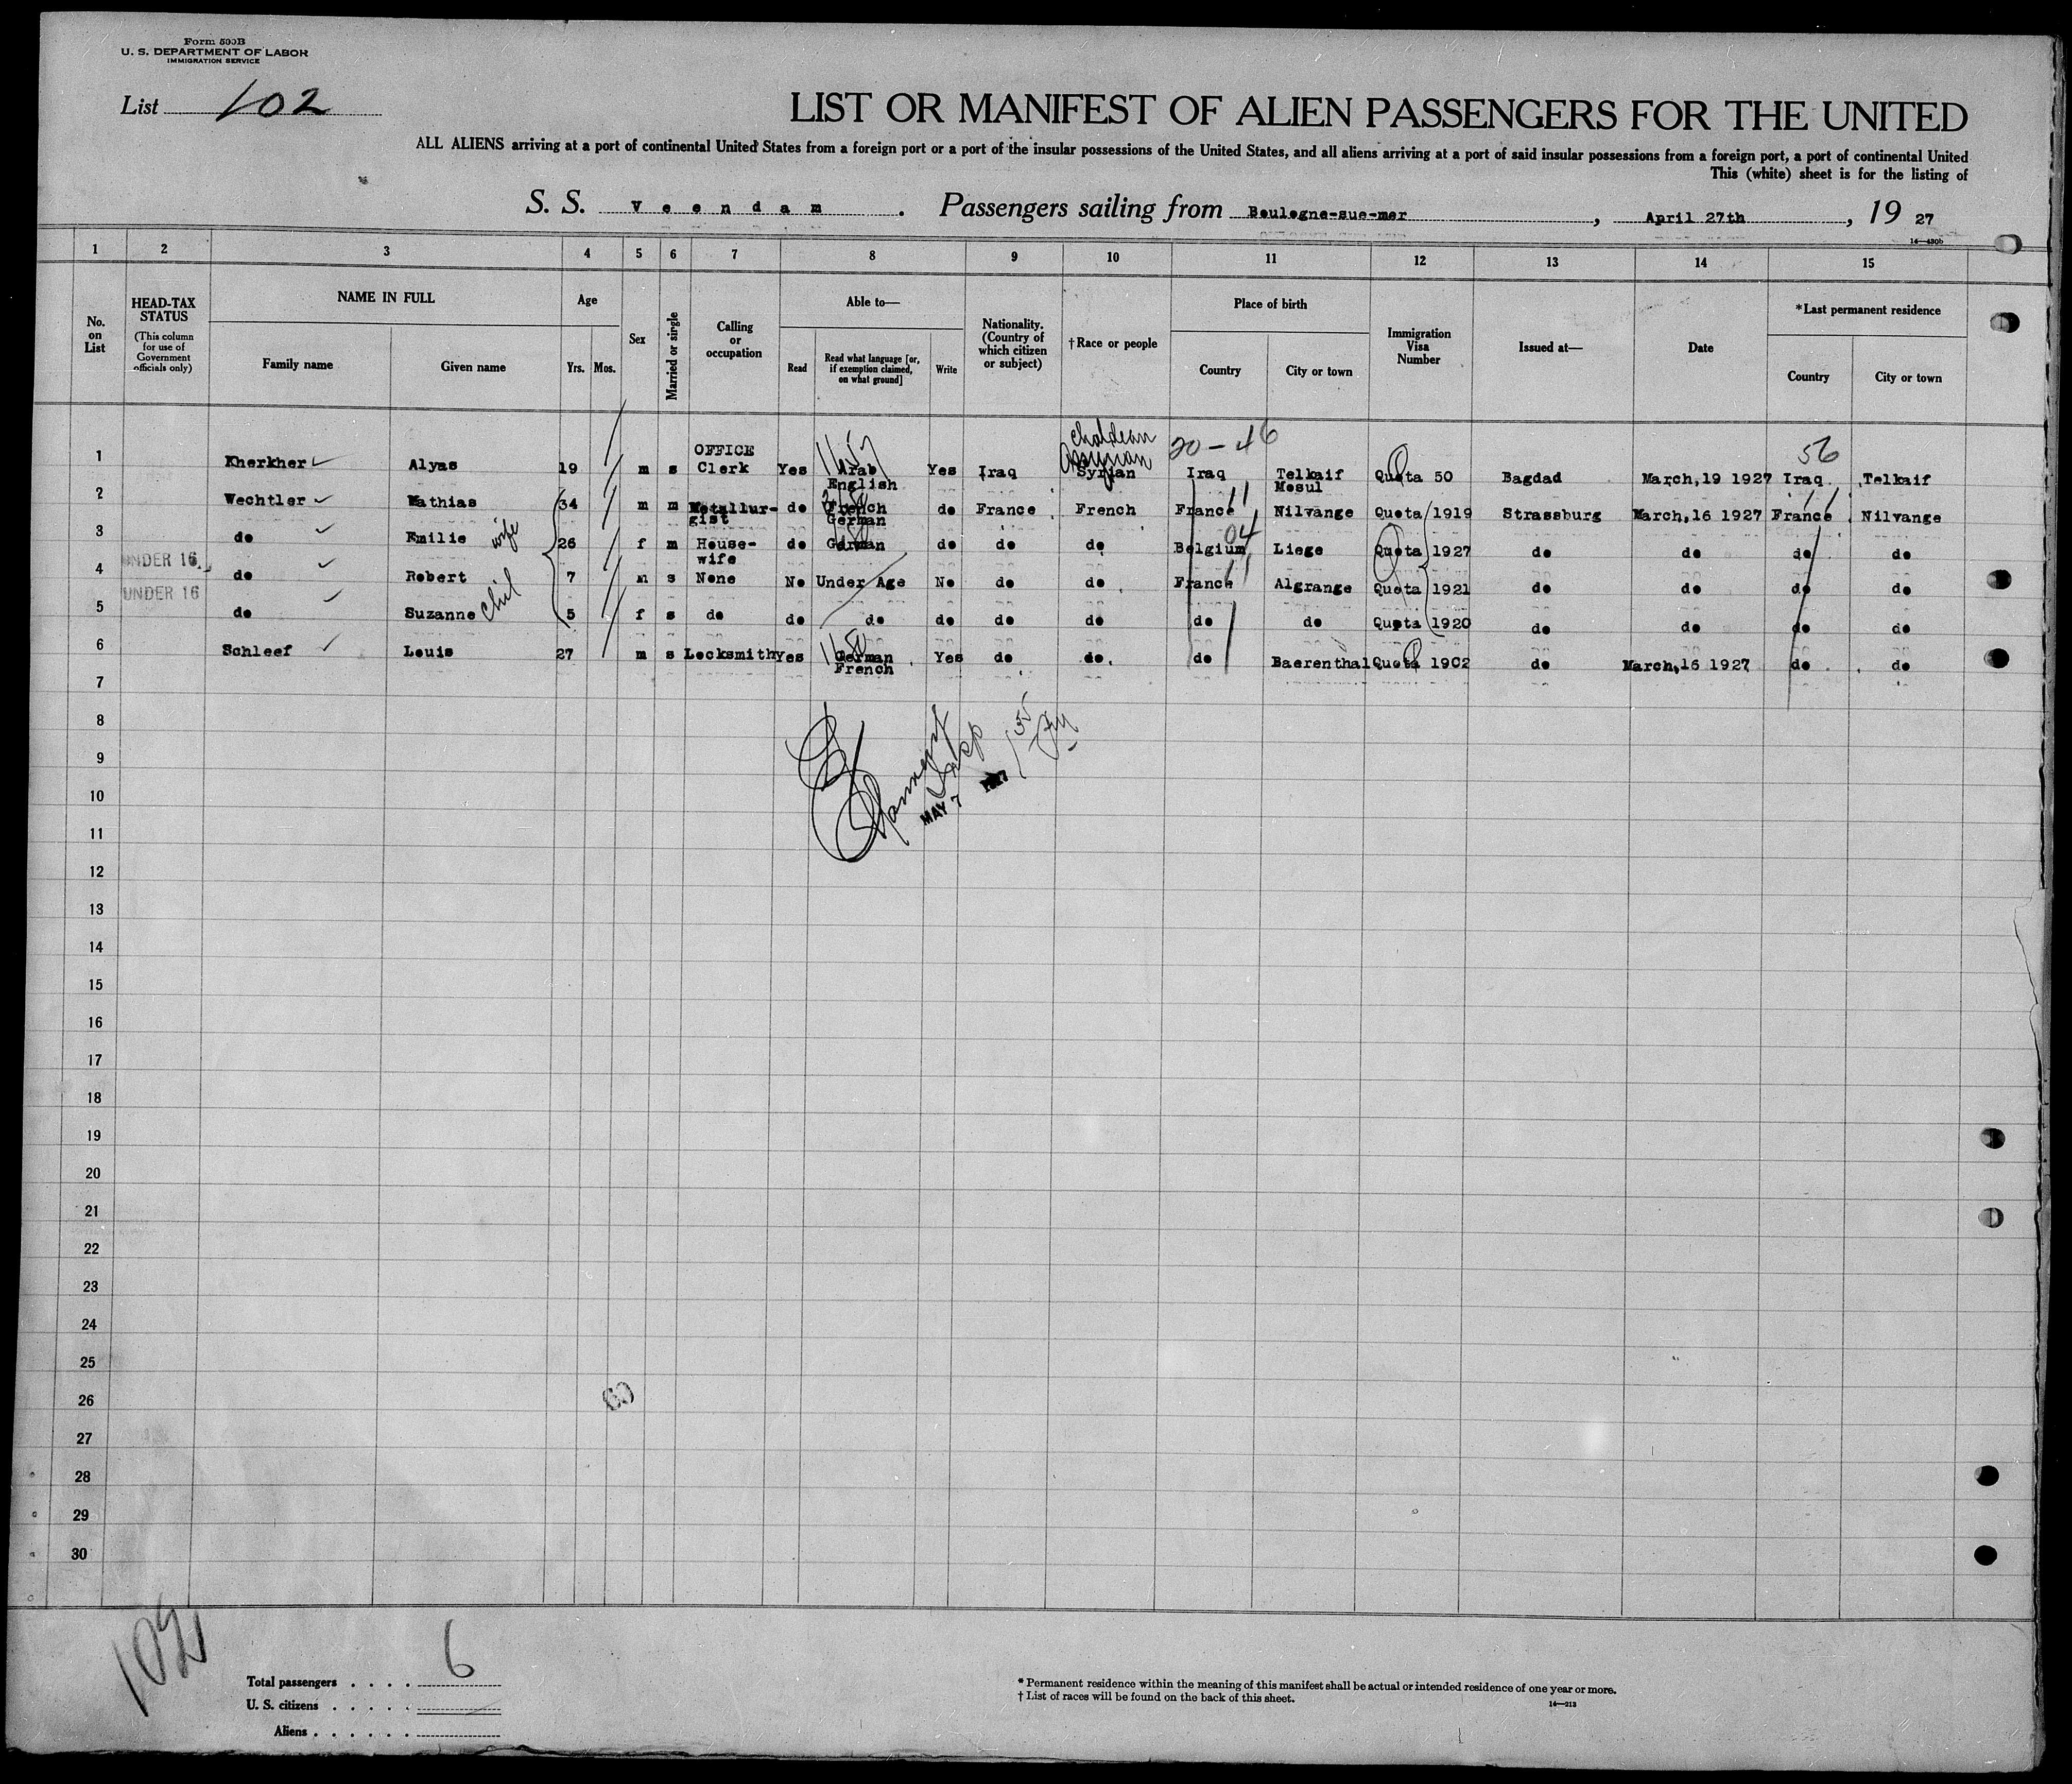 Form 500B
U. S. DEPARTMENT OF LABOR
IMMIGRATION SERVICE
List 102
LIST OR MANIFEST OF ALIEN PASSENGERS FOR THE UNITED
ALL ALIENS arriving at a port of continental United States from a foreign port or a port of the insular possessions of the United States, and all aliens arriving at a port of said insular possessions from a foreign port, a port of continental United
This (white) sheet is for the listing of
S. S. Veendam. Passengers sailing from Boulogne-sue-mer, April 27th, 19 27
14—430b
1 2 3 4 5 6 7 8 9 10 11 12 13 14 15
No. on List
HEAD-TAX STATUS
(This column for use of Government officials only)
NAME IN FULL
Family name Given name
Age
Yrs. Mos.
Sex
Married or single
Calling or occupation
Able to—
Read
Read what language [or, if exemption claimed, on what ground]
Write
Nationality. (Country of which citizen or subject)
†Race or people
Place of birth
Country City or town
Immigration Visa Number
Issued at—
Date
*Last permanent residence
Country City or town
Chaldean 20-46 56
OFFICE Assyrian
1 Kherkher Alyas 19 m s Clerk Yes Arab Yes Iraq Syrian Iraq Telkaif Quota 50 Bagdad March,19 1927 Iraq Telkaif
English Mosul
2 Wechtler Mathias 34 m m Metallur- do French do France French France 11 Nilvange Quota 1919 Strassburg March,16 1927 France 11 Nilvange
gist German
3 do Emilie wife 26 f m House- do German do do do Belgium 04 Liege Quota 1927 do do do do
wife
UNDER 16
4 do Robert 7 m s None No Under Age No do do France 11 Algrange Quota 1921 do do do do
UNDER 16 chil
5 do Suzanne 5 f s do do do do do do do do Quota 1920 do do do do
6 Schleef Louis 27 m s Locksmith Yes German Yes do do do Baerenthal Quota 1902 do March,16 1927 do do
French
7
8
9
MAY 7 1927
10
11
12
13
14
15
16
17
18
19
20
21
22
23
24
25
26
27
28
29
30
102
Total passengers . . . . 6
U. S. citizens . . . . .
Aliens . . . . . .
* Permanent residence within the meaning of this manifest shall be actual or intended residence of one year or more.
† List of races will be found on the back of this sheet.
14—213